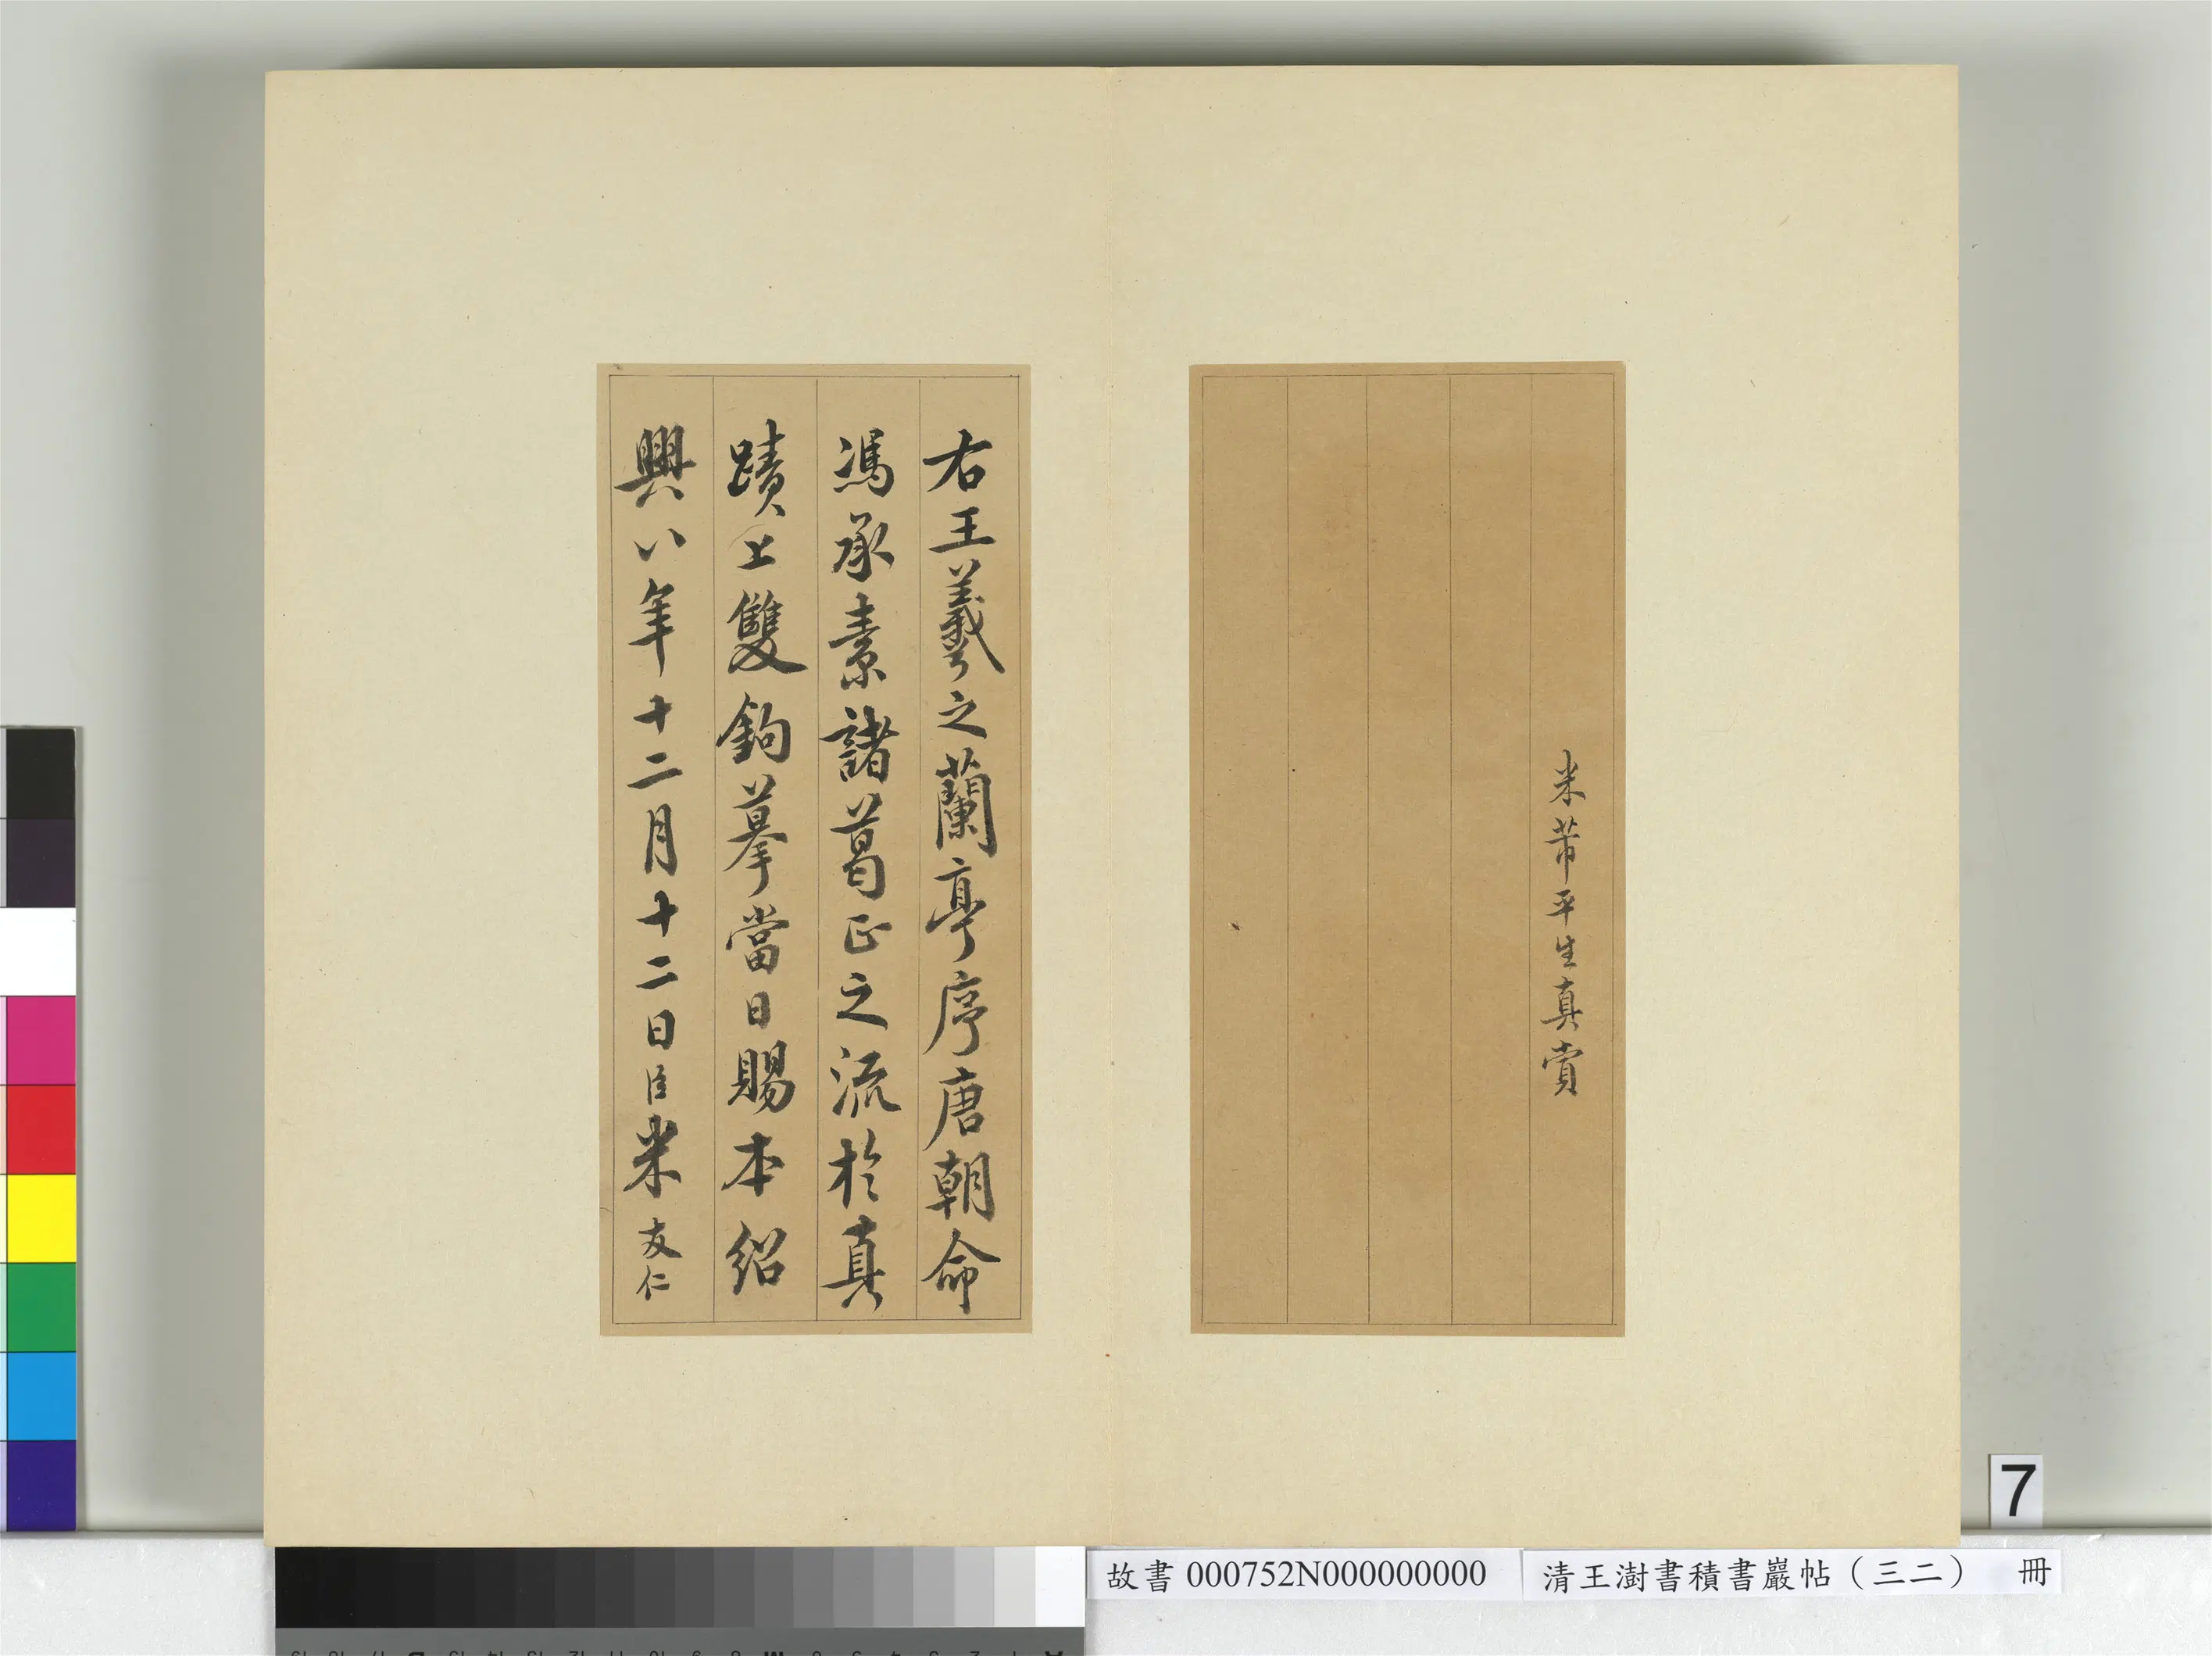 米芾平生真賞
右王羲之蘭亭序唐朝命
馮承素諸葛正之流於真
蹟上雙鉤摹當日賜本紹
興八年十二月十二日臣米友仁
7
故書 000752N000000000
清王澍書積書巖帖（三二） 冊